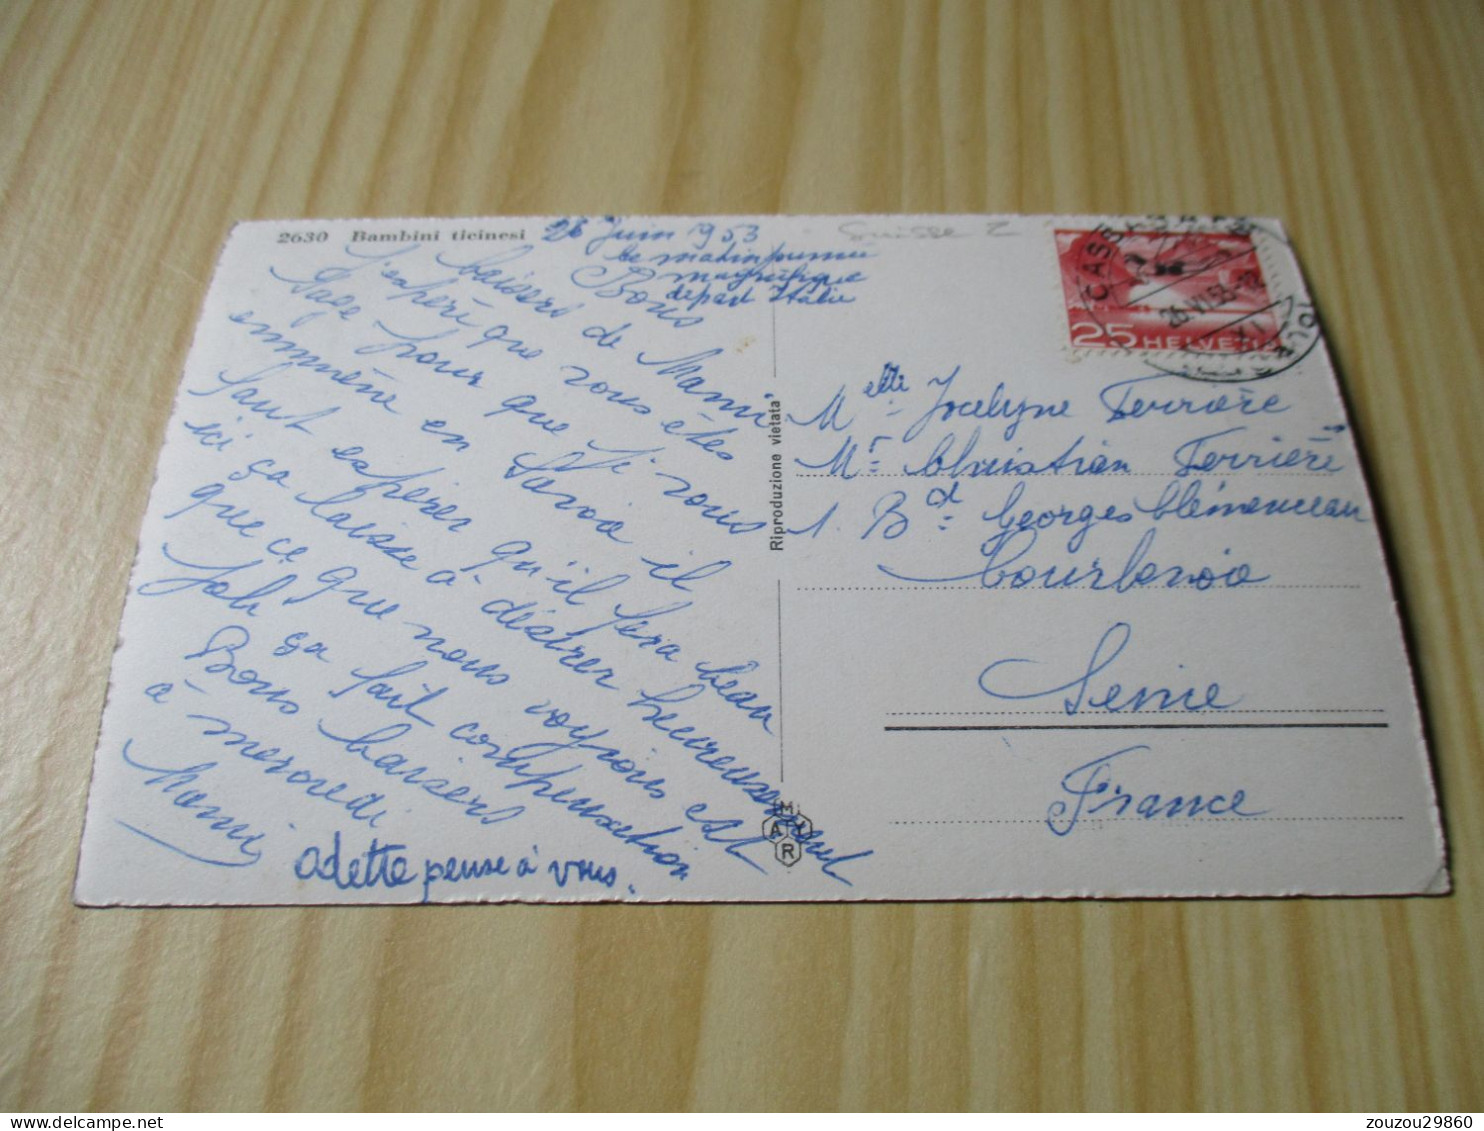 2630 Bambini ticinesi
26 Juin 1953
ce matin
magnifique
départ Italie
Suisse
Bons
baisers de Mami
J'espère que vous êtes
sage pour que si nous
emmène en Savoie il
faut espérer qu'il fera beau
ici ça laisse à désirer heureusement
que ce que nous voyons est
Joli ça fait compensation
Bons baisers
à mercredi
Mami
Odette pense à vous.
Riproduzione vietata
MAYR
25 HELVETIA
26.VI.53-12
XI
Melle Jocelyne Ferrière
Mr Christian Ferrière
1. Bd Georges Clémenceau
Courbevoie
Seine
France
zouzou29860